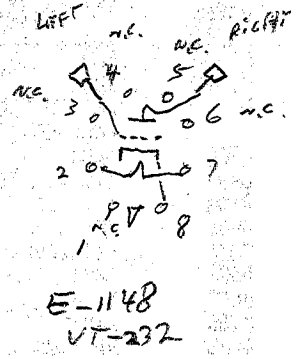 LEFT
N.C.
N.C.
RIGHT
4
5
N.C.
3
6
N.C.
2
7
N.C.
8
1
E-1148
VT-232